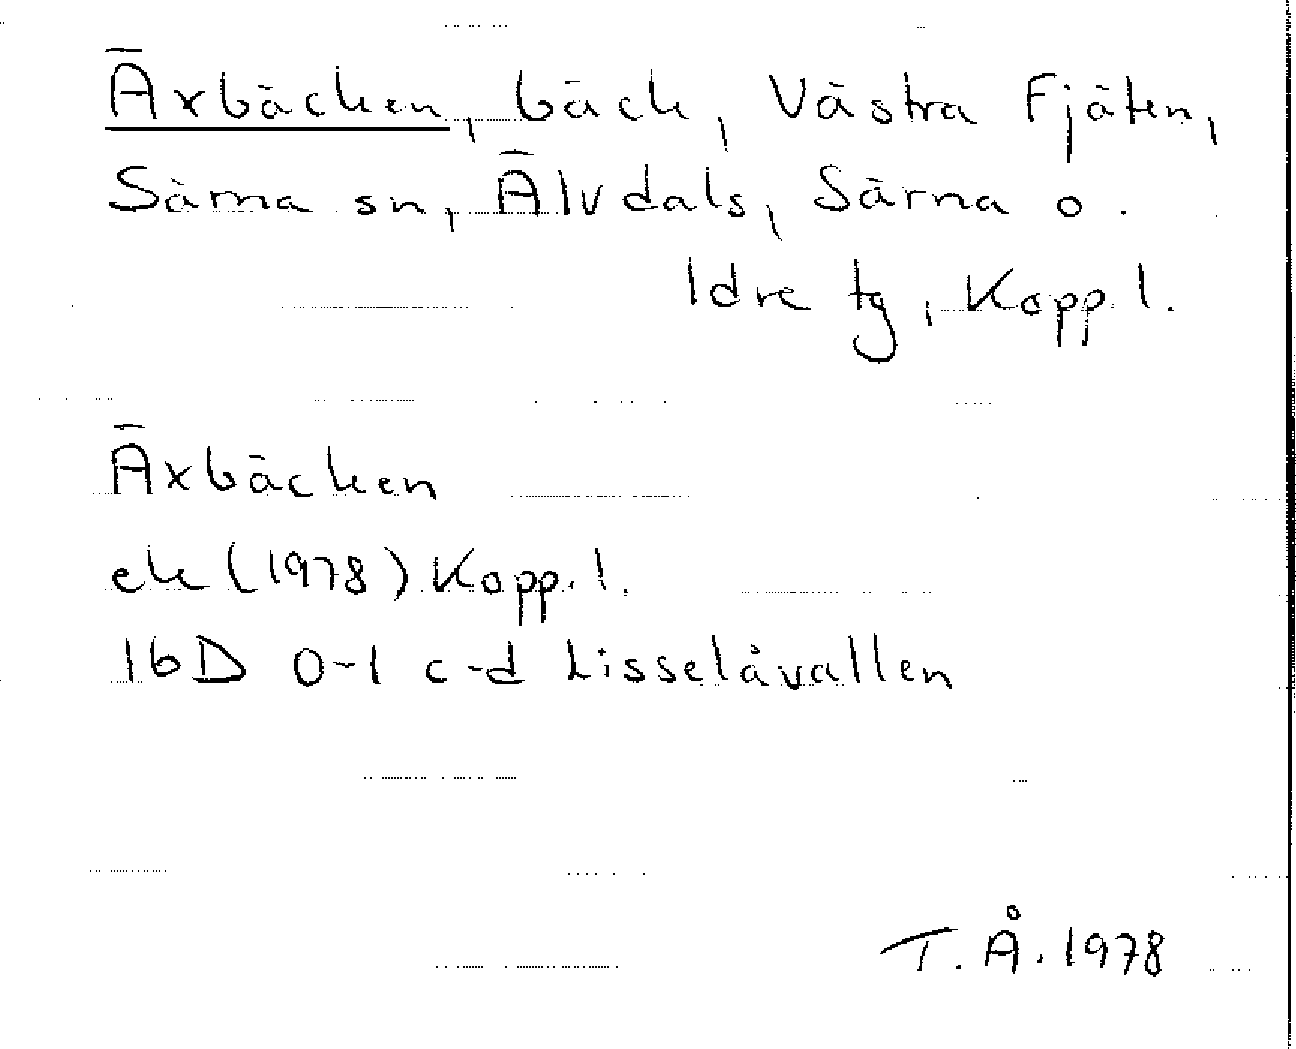 Äxbäcken, bäck, Västra Fjäten,
Särna sn, Älvdals, Särna o.
Idre tg, Kopp. l.
Äxbäcken
ek (1978) Kopp. l.
16D 0-1 c-d Lisselåvallen
T. Å. 1978